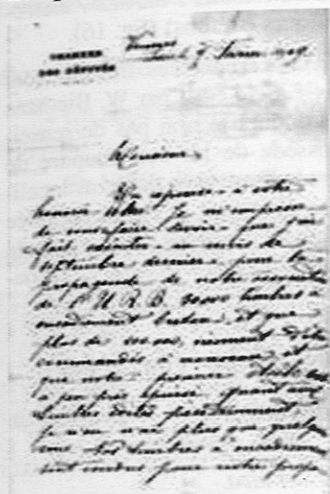 CHAMBRE
DES DÉPUTÉS
Vannes
7 Janvier 1909
Monsieur,
En réponse à votre
honorée Je m'empresse
de vous faire savoir que j'ai
fait au mois de
septembre dernier, pour la
propagande de notre association
de l'U. R. B. 30.000 timbres à
encadrement breton, et que
plus de 100.000, viennent d'être
commandés à nouveau et
que notre premier stock est
à peu près épuisé, quant aux
timbres
je n'en ai plus que quelques
uns Nos timbres à encadrement
sont vendus pour notre propa